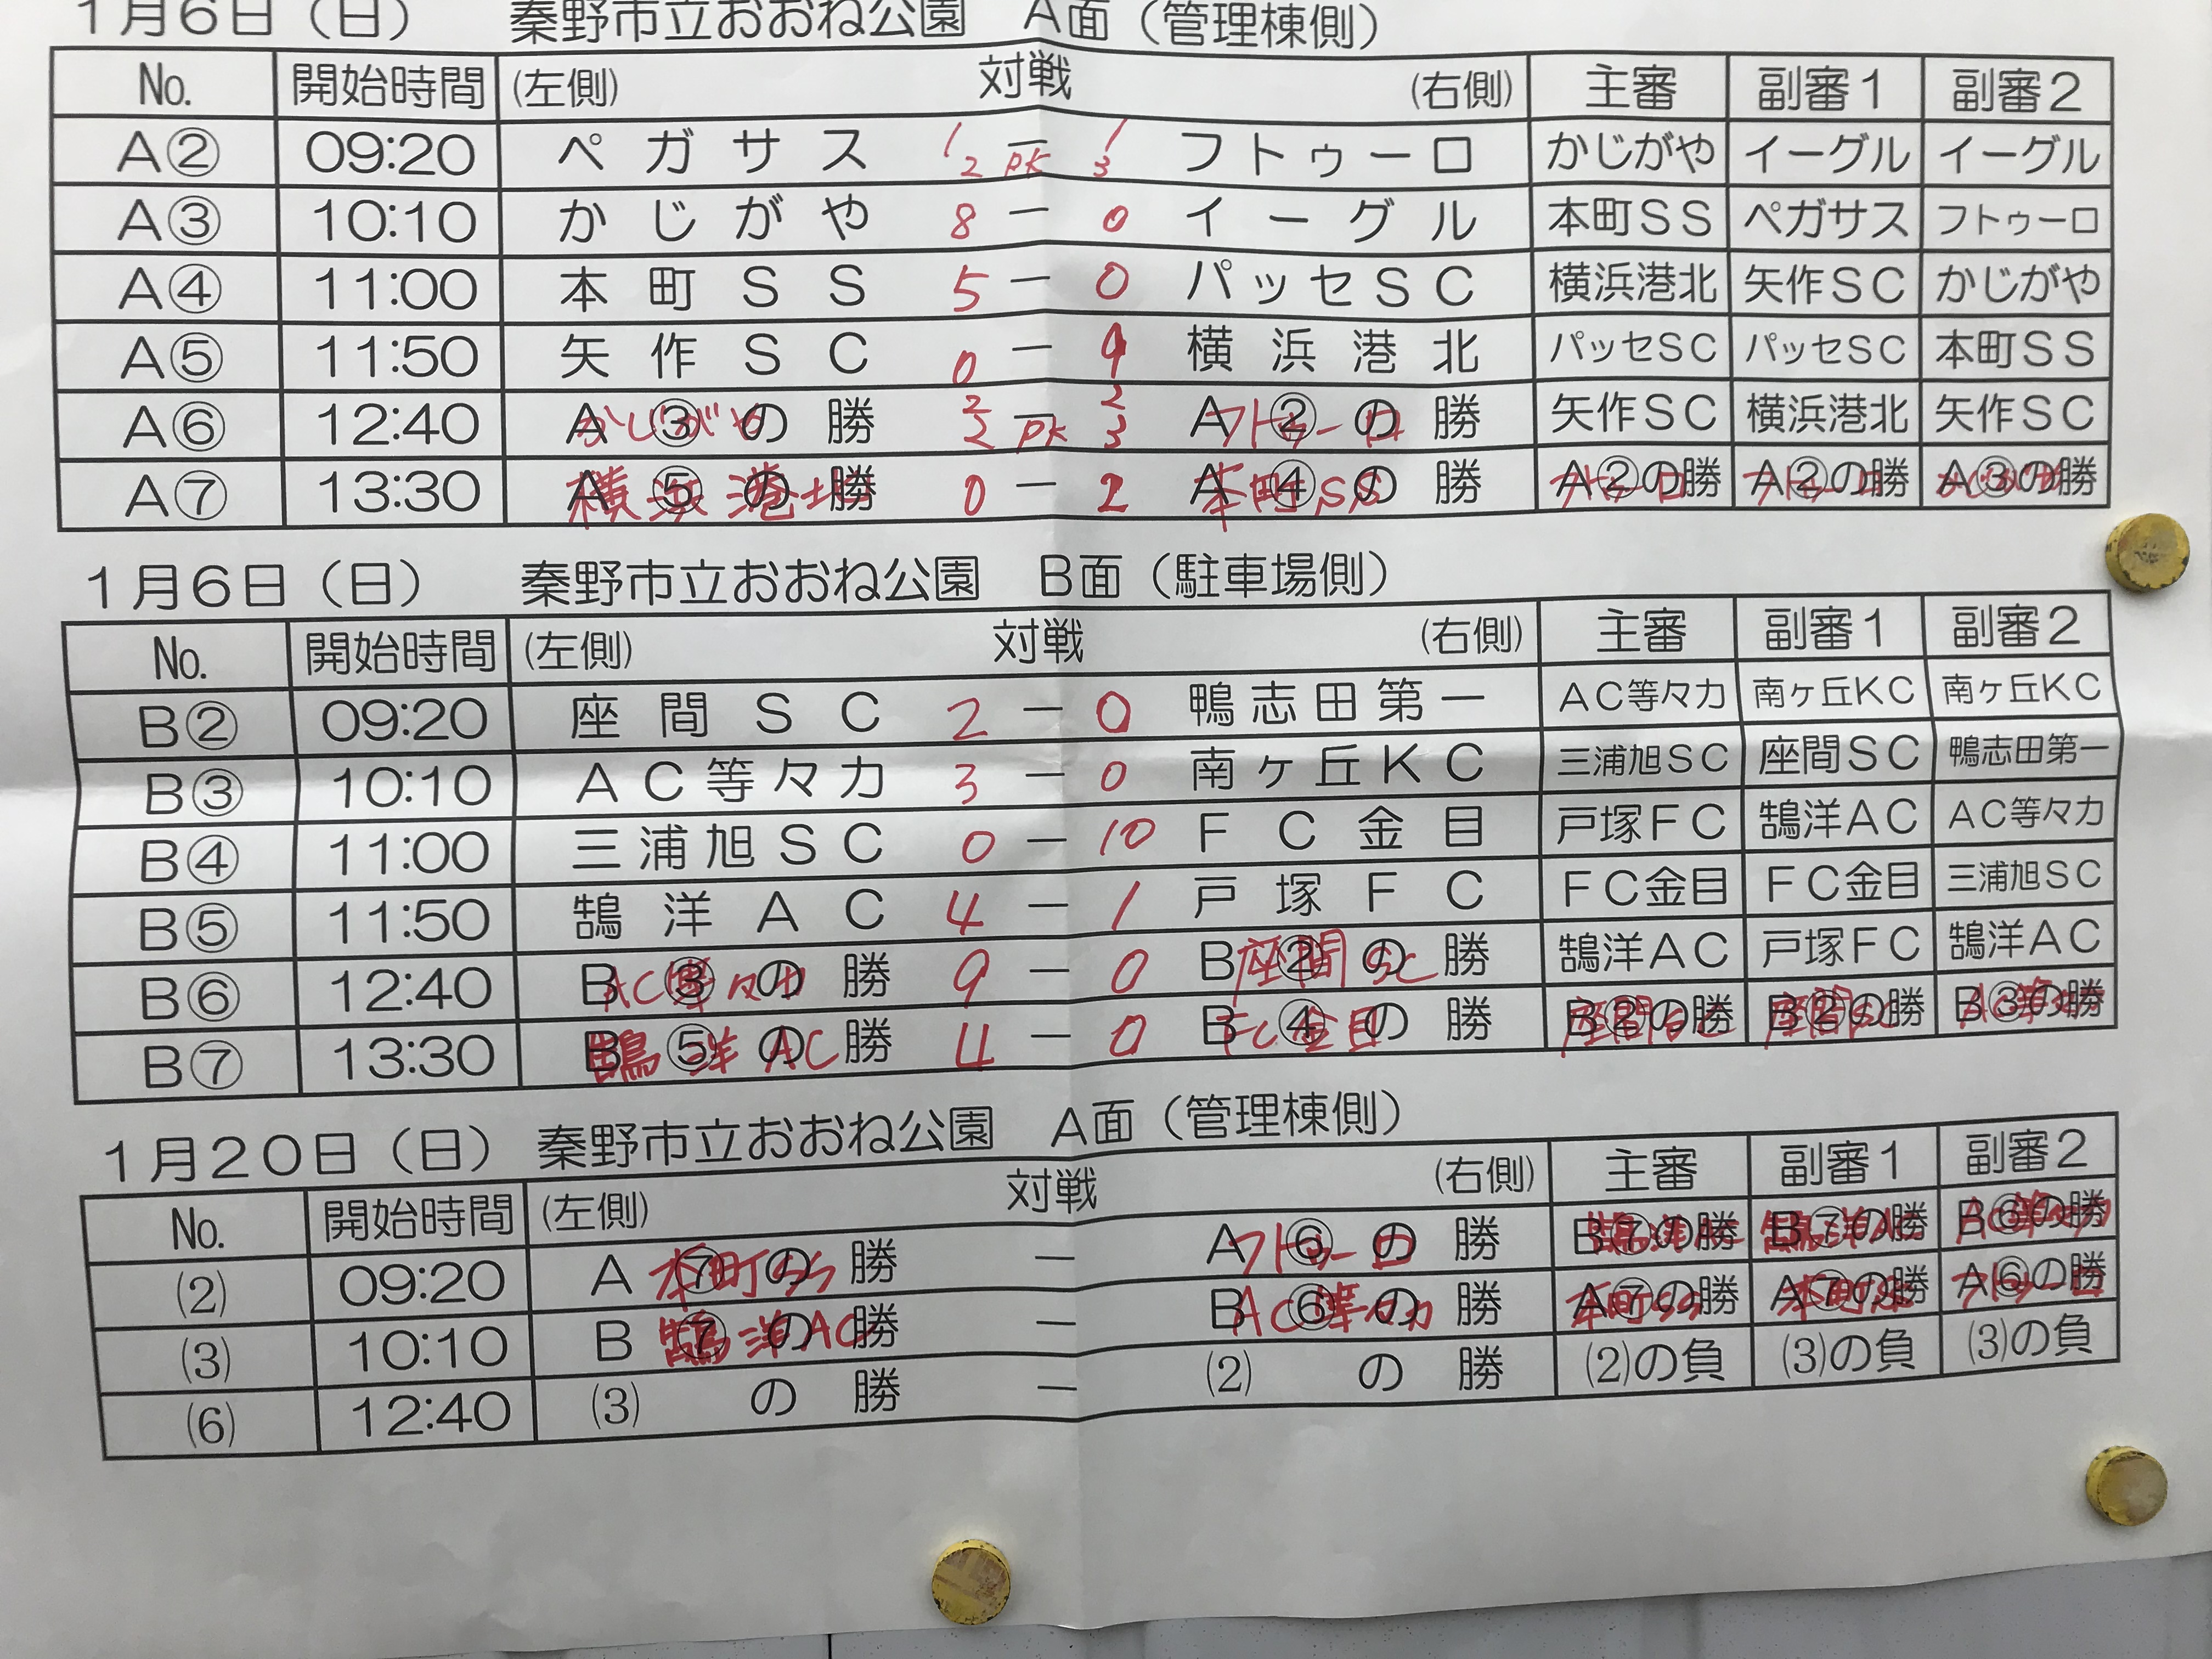 1月6日(日) 秦野市立おおね公園 A面(管理棟側)
No. 開始時間 (左側) 対戦 (右側) 主審 副審1 副審2
A② 09:20 ペガサス 1 2 — PK 1 3 フトゥーロ かじがや イーグル イーグル
A③ 10:10 かじがや 8 — 0 イーグル 本町SS ペガサス フトゥーロ
A④ 11:00 本町SS 5 — 0 パッセSC 横浜港北 矢作SC かじがや
A⑤ 11:50 矢作SC 0 — 9 横浜港北 パッセSC パッセSC 本町SS
A⑥ 12:40 A③の勝 かじがや 2 2 — PK 2 3 A②の勝 フトゥーロ 矢作SC 横浜港北 矢作SC
A⑦ 13:30 A⑤の勝 横浜港北 0 — 2 A④の勝 本町SS A②の勝 フトゥーロ A②の勝 フトゥーロ A③の勝 かじがや
1月6日(日) 秦野市立おおね公園 B面(駐車場側)
No. 開始時間 (左側) 対戦 (右側) 主審 副審1 副審2
B② 09:20 座間SC 2 — 0 鴨志田第一 AC等々力 南ヶ丘KC 南ヶ丘KC
B③ 10:10 AC等々力 3 — 0 南ヶ丘KC 三浦旭SC 座間SC 鴨志田第一
B④ 11:00 三浦旭SC 0 — 10 FC金目 戸塚FC 鵠洋AC AC等々力
B⑤ 11:50 鵠洋AC 4 — 1 戸塚FC FC金目 FC金目 三浦旭SC
B⑥ 12:40 B③の勝 AC等々力 9 — 0 B②の勝 座間SC 鵠洋AC 戸塚FC 鵠洋AC
B⑦ 13:30 B⑤の勝 鵠洋AC 4 — 0 B④の勝 FC金目 B②の勝 座間SC B②の勝 座間SC B③の勝 AC等々力
1月20日(日) 秦野市立おおね公園 A面(管理棟側)
No. 開始時間 (左側) 対戦 (右側) 主審 副審1 副審2
(2) 09:20 A⑦の勝 本町SS — A⑥の勝 フトゥーロ B⑦の勝 鵠洋AC B⑦の勝 鵠洋AC B⑥の勝 AC等々力
(3) 10:10 B⑦の勝 鵠洋AC — B⑥の勝 AC等々力 A⑦の勝 本町SS A⑦の勝 本町SS A⑥の勝 フトゥーロ
(6) 12:40 (3)の勝 — (2)の勝 (2)の負 (3)の負 (3)の負